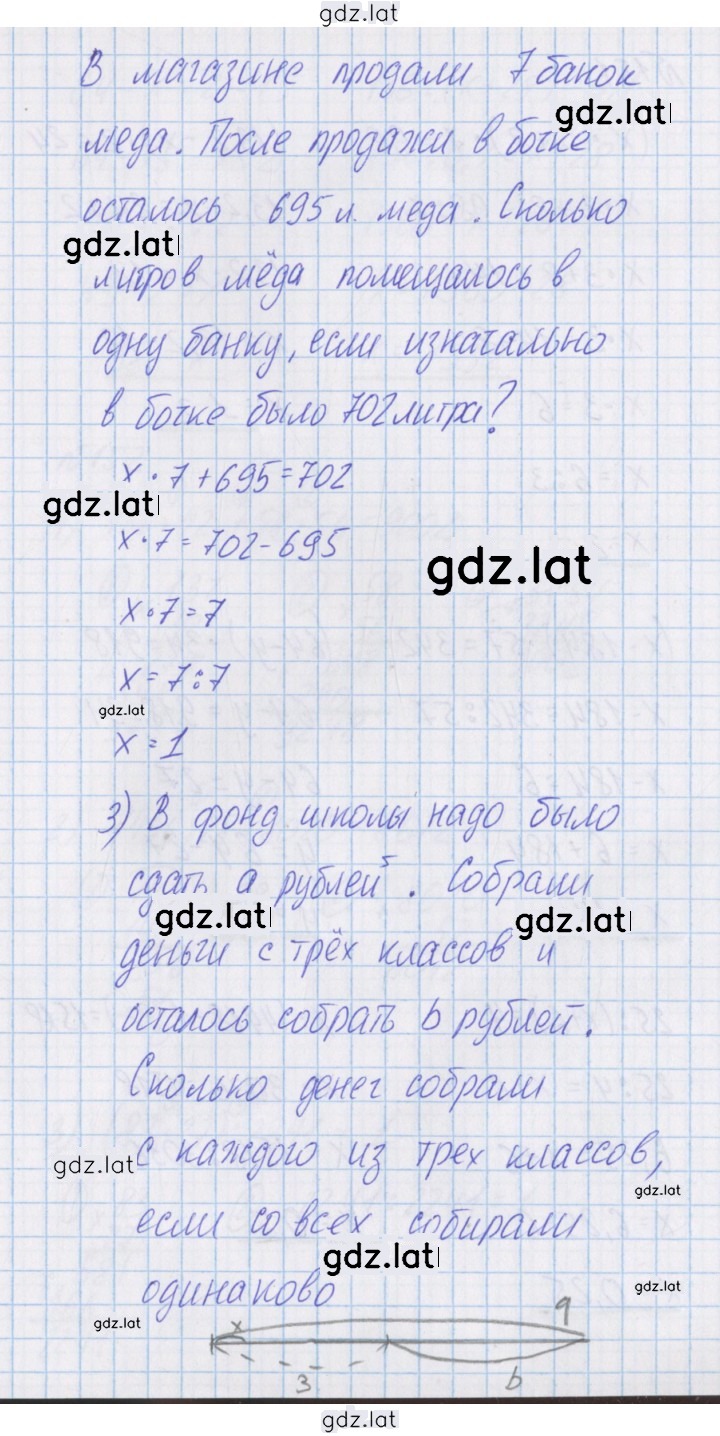 gdz.lat
В магазине продали 7 банок
gdz.lat
меда. После продажи в бочке
осталось 695 л. меда. Сколько
gdz.lat
литров мёда помещалось в
одну банку, если изначально
в бочке было 702 литра?
x · 7 + 695 = 702
gdz.lat
x · 7 = 702 - 695
gdz.lat
x · 7 = 7
x = 7 : 7
gdz.lat
x = 1
3) В фонд школы надо было
сдать a рублей. Собрали
gdz.lat gdz.lat
деньги с трёх классов и
осталось собрать b рублей.
Сколько денег собрали
с каждого из трех классов,
gdz.lat
gdz.lat
если со всех собирали
gdz.lat
одинаково
gdz.lat
gdz.lat
x a
3 b
gdz.lat